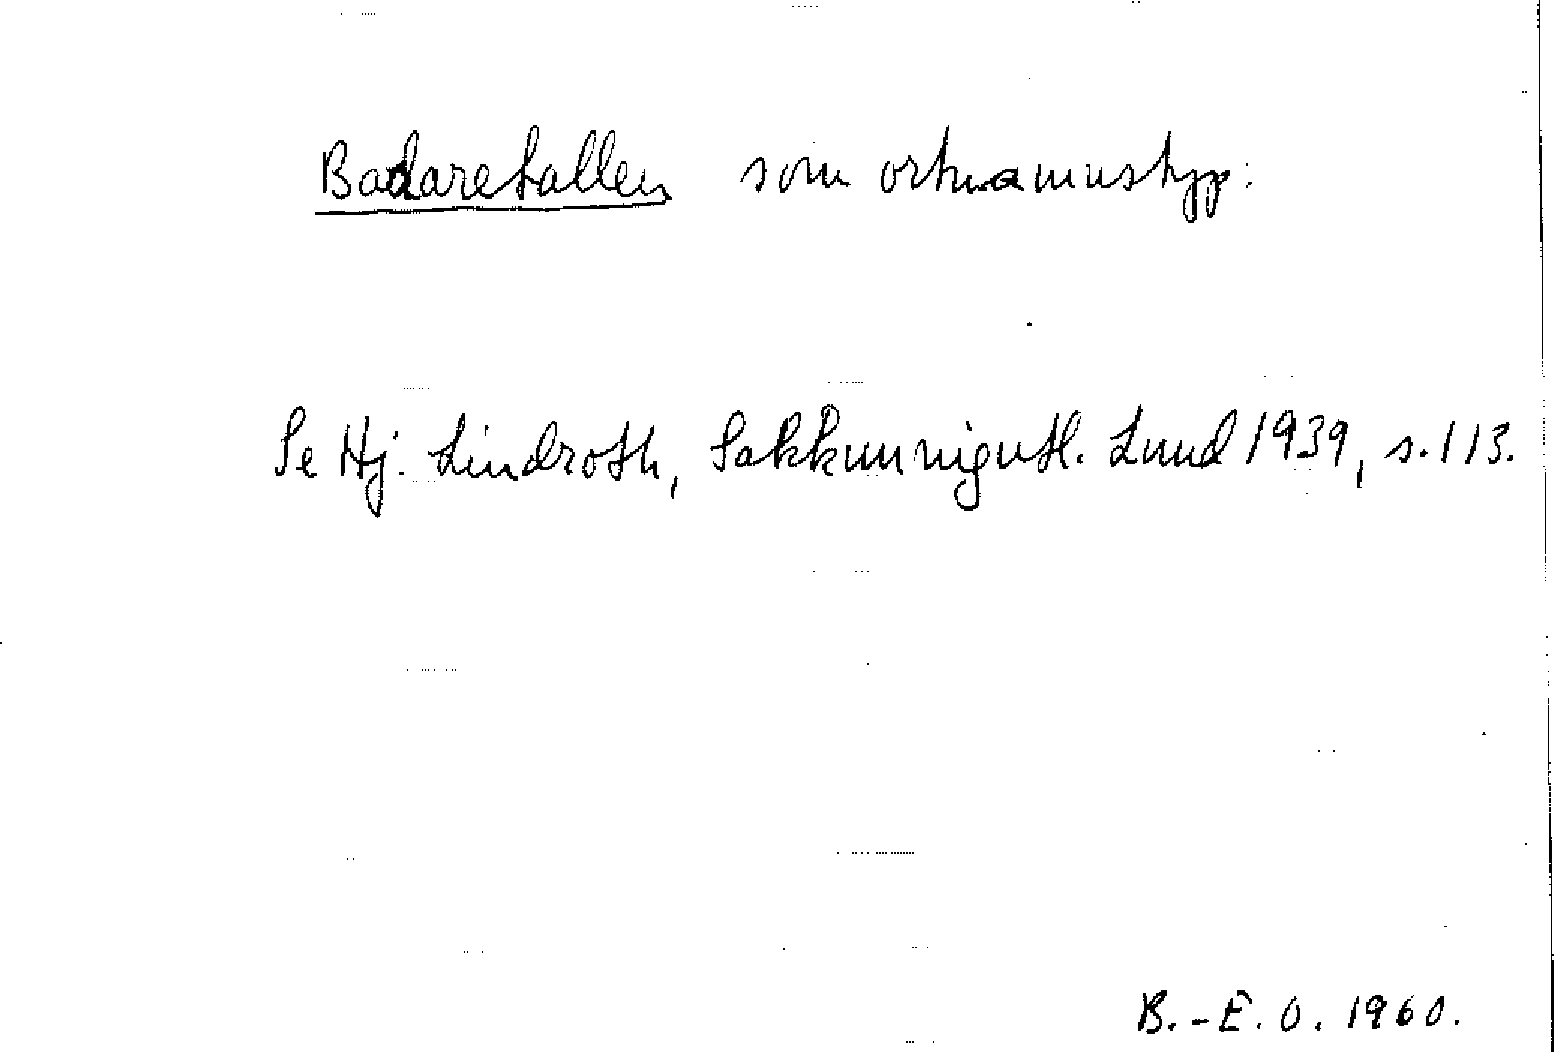 Badarehallen som ortnamnstyp:
Se Hj. Lindroth, Sakkunnigutl. Lund 1939, s. 113.
B.-E. O. 1960.